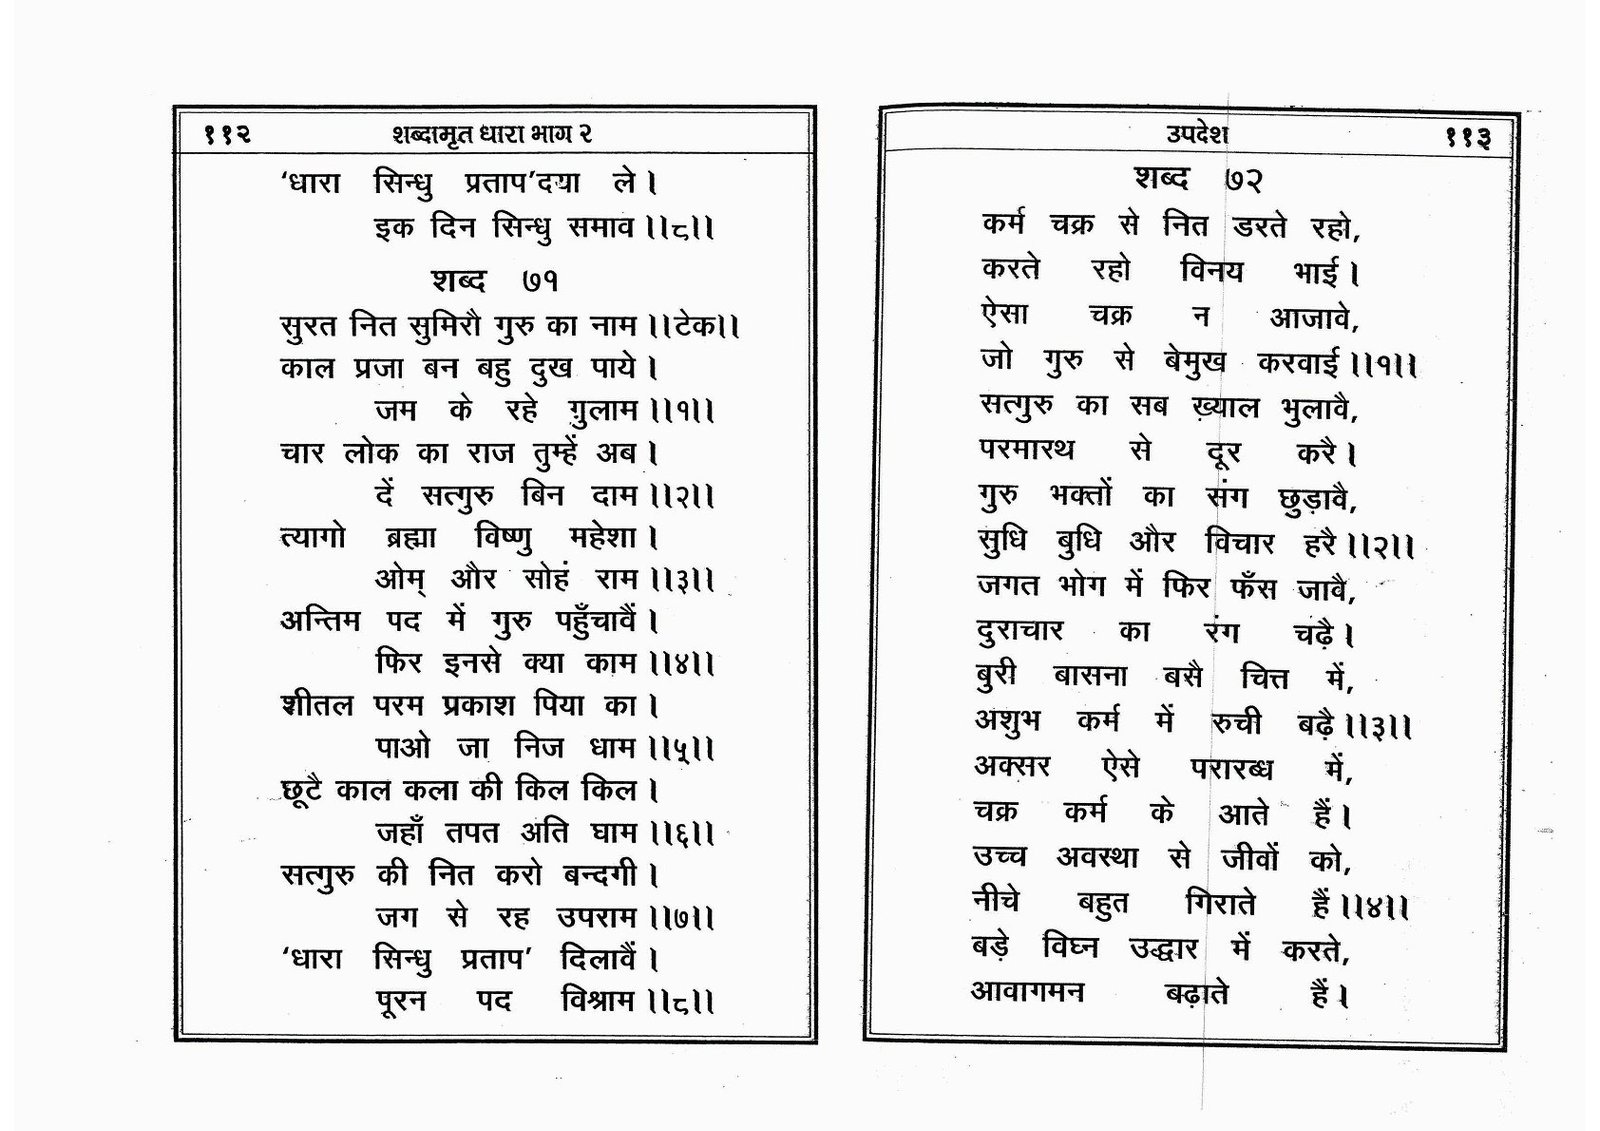 ११२ शब्दामृत धारा भाग २
‘धारा सिन्धु प्रताप’दया ले ।
इक दिन सिन्धु समाव ।।८।।
शब्द ७१
सुरत नित सुमिरौ गुरु का नाम ।।टेक।।
काल प्रजा बन बहु दुख पाये ।
जम के रहे ग़ुलाम ।।१।।
चार लोक का राज तुम्हें अब ।
दें सत्गुरु बिन दाम ।।२।।
त्यागो ब्रह्मा विष्णु महेशा ।
ओम् और सोहं राम ।।३।।
अन्तिम पद में गुरु पहुँचावैं ।
फिर इनसे क्या काम ।।४।।
शीतल परम प्रकाश पिया का ।
पाओ जा निज धाम ।।५।।
छूटै काल कला की किल किल ।
जहाँ तपत अति घाम ।।६।।
सत्गुरु की नित करो बन्दगी ।
जग से रह उपराम ।।७।।
‘धारा सिन्धु प्रताप’ दिलावैं ।
पूरन पद विश्राम ।।८।।
उपदेश ११३
शब्द ७२
कर्म चक्र से नित डरते रहो,
करते रहो विनय भाई ।
ऐसा चक्र न आजावे,
जो गुरु से बेमुख करवाई ।।१।।
सत्गुरु का सब ख़्याल भुलावै,
परमारथ से दूर करै ।
गुरु भक्तों का संग छुड़ावै,
सुधि बुधि और विचार हरै ।।२।।
जगत भोग में फिर फँस जावै,
दुराचार का रंग चढ़ै ।
बुरी बासना बसै चित्त में,
अशुभ कर्म में रुची बढ़ै ।।३।।
अक्सर ऐसे परारब्ध में,
चक्र कर्म के आते हैं ।
उच्च अवस्था से जीवों को,
नीचे बहुत गिराते हैं ।।४।।
बड़े विघ्न उद्धार में करते,
आवागमन बढ़ाते हैं ।